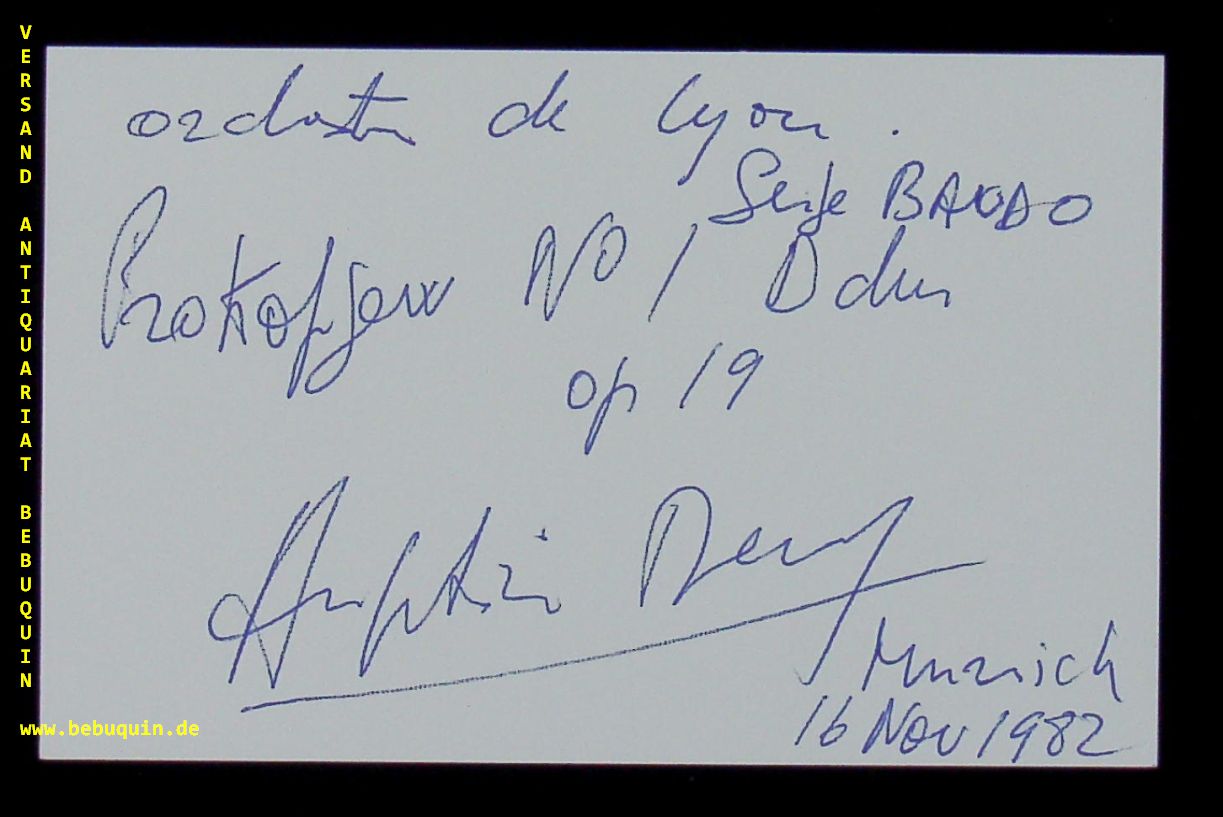 VERSAND ANTIQUARIAT BEBUQUIN
www.bebuquin.de
orchestre de Lyon.
Serge BAUDO
Prokofjew No 1 D dur
op 19
Munich
16 Nov 1982